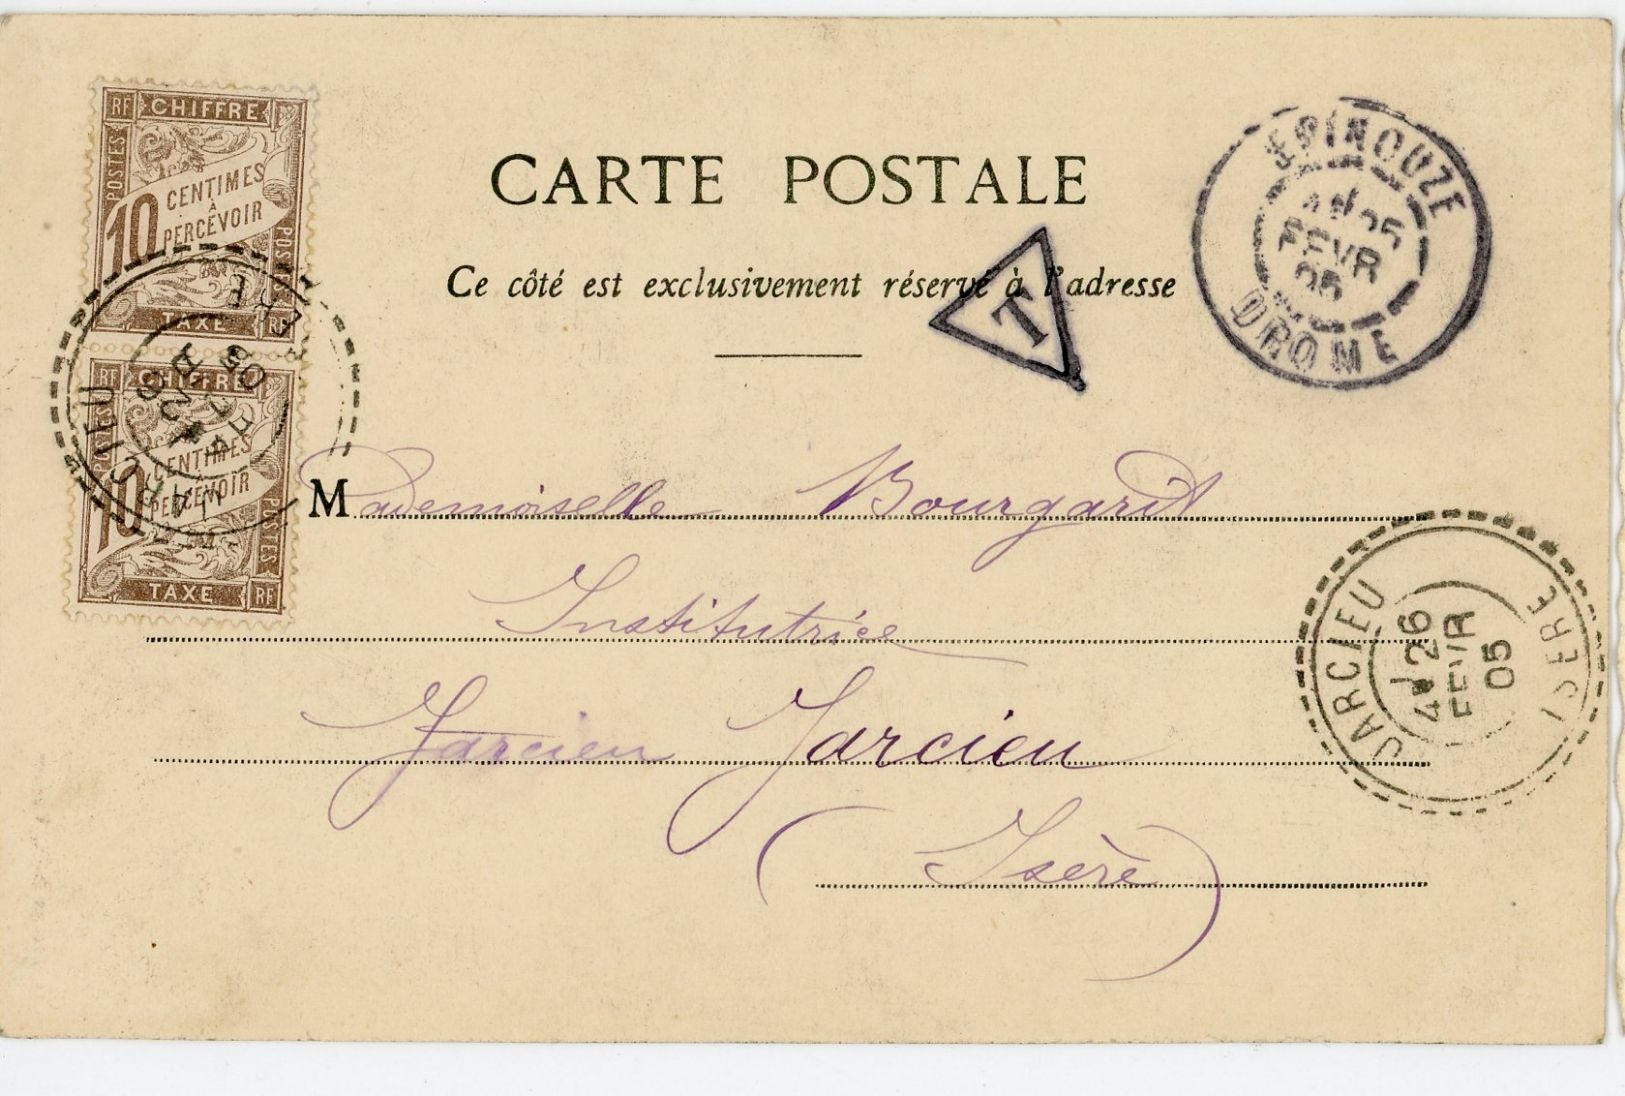 RF CHIFFRE
POSTES
10 CENTIMES
À
PERCEVOIR
POSTES
TAXE RF
RF CHIFFRE
POSTES
10 CENTIMES
À
PERCEVOIR
POSTES
TAXE RF
CARTE POSTALE
Ce côté est exclusivement réservé à l'adresse
T
EPINOUZE
25
FEVR
05
DROME
Mademoiselle Bourgarit
Institutrice
Jarcieu Jarcieu
(Isère)
JARCIEU
26
FEVR
05
ISERE